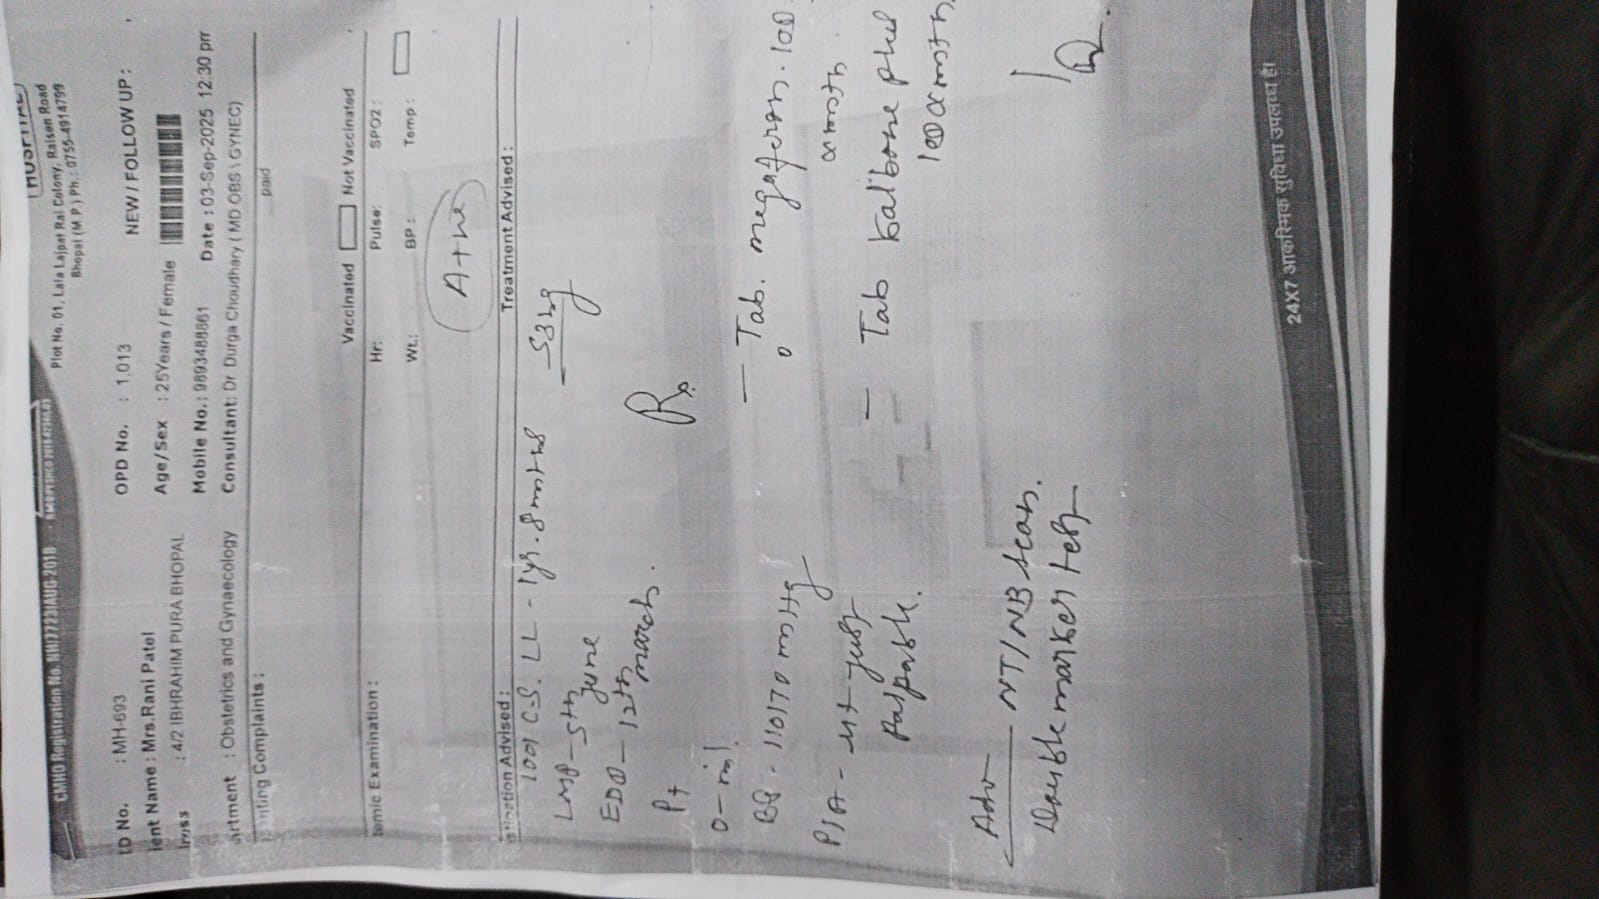 HOSPITAL
CMHO Registration No. NH/7723/AUG-2018
Plot No. 01, Lala Lajpat Rai Colony, Raisen Road
Bhopal (M.P.) Ph.: 0755-4914799
ID No. : MH-693 OPD No. : 1,013 NEW / FOLLOW UP :
ient Name : Mrs.Rani Patel Age/Sex : 25Years / Female
ress : 4/2 IBHRAHIM PURA BHOPAL Mobile No. : 9893488861 Date : 03-Sep-2025 12:30 pm
artment : Obstetrics and Gynaecology Consultant: Dr Durga Choudhary ( MD OBS \ GYNEC)
nting Complaints : paid
Vaccinated Not Vaccinated
temic Examination : Hr: Pulse: SPO2 :
Wt.: BP : Temp :
A+ve
Advised : Treatment Advised :
C.S. LL - 1yr. 8mnths 53kg
LMP - 5th June
EDD - 12th march.
Rx
BP - 110/70 mmHg
— Tab.
P/A - ut just
palpable.
— Tab
Adv — NT/NB scan.
Double marker test
24X7 आकस्मिक सुविधा उपलब्ध है।